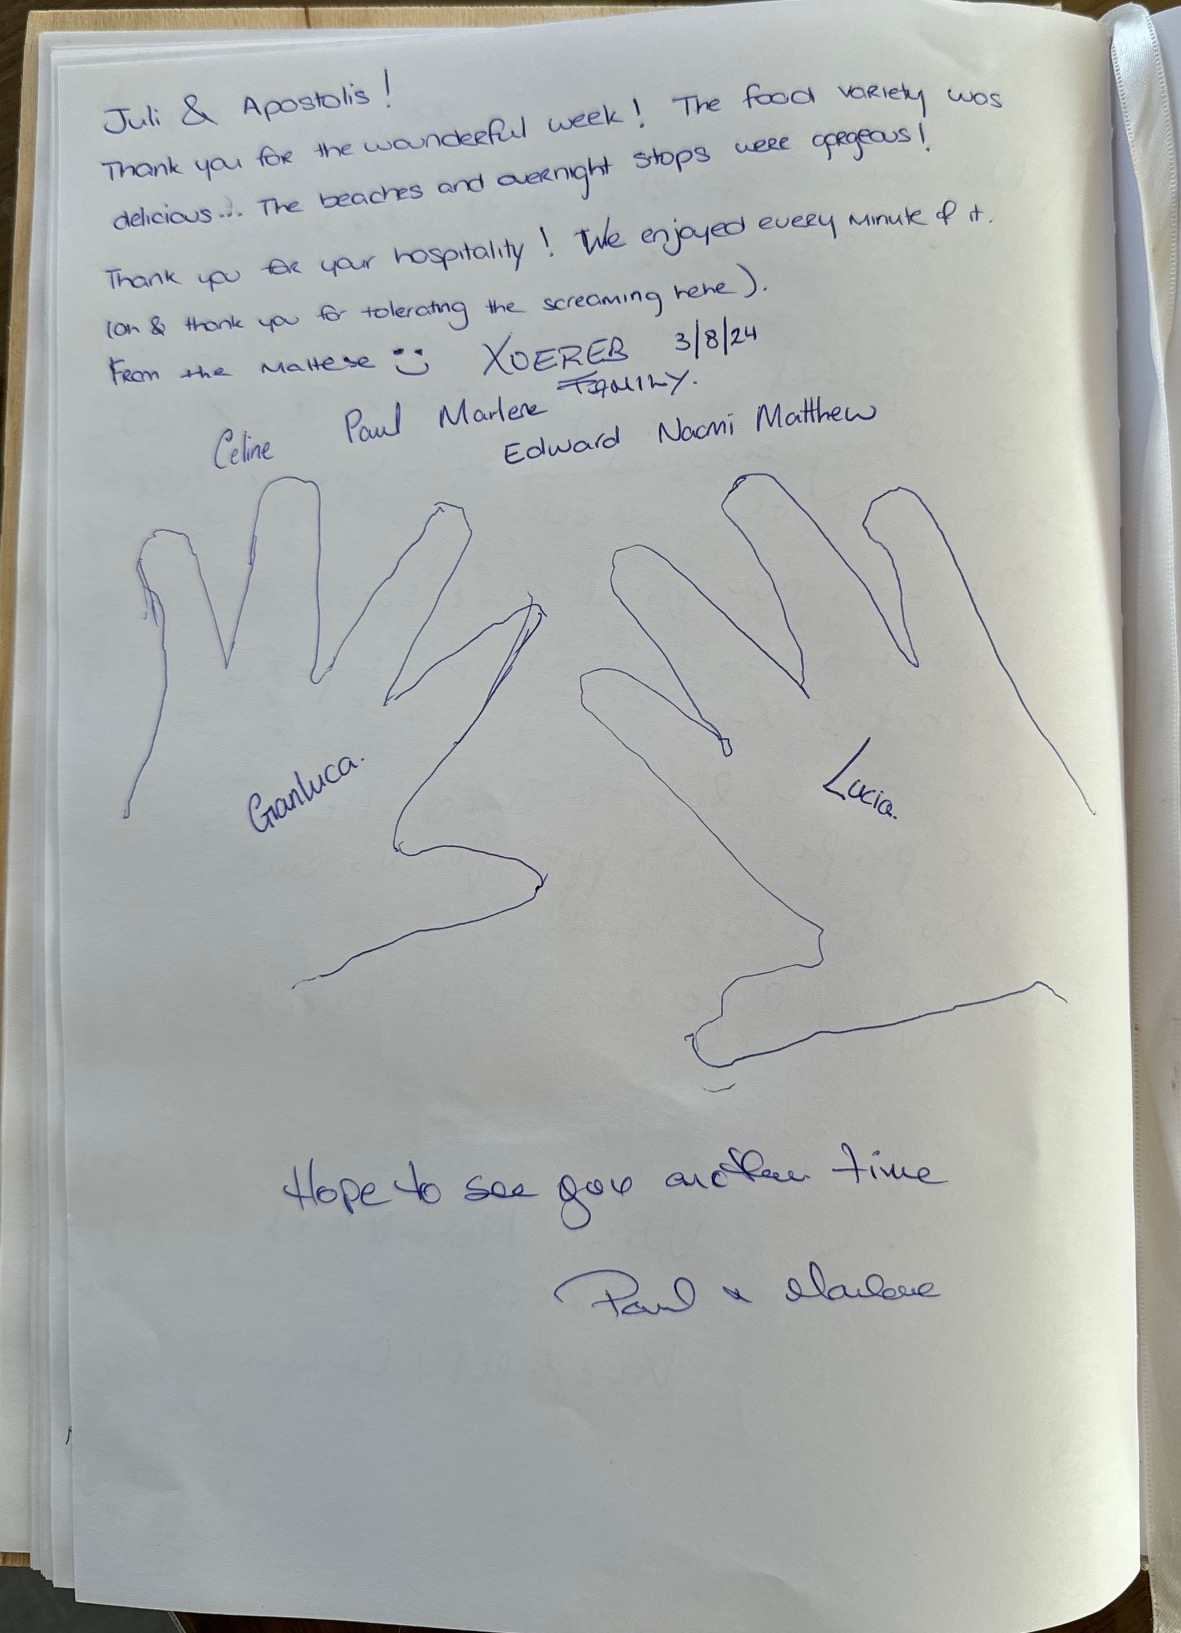 Juli & Apostolis!
Thank you for the wounderful week! The food variety was
delicious... The beaches and overnight stops were gorgeous!
Thank you for your hospitality! We enjoyed every minute of it.
(oh & thank you for tolerating the screaming hehe).
From the Maltese :) XUEREB 3/8/24
FAMILY.
Celine Paul Marlene Edward Naomi Matthew
Gianluca.
Lucia.
Hope to see you another time
Paul & Marlene